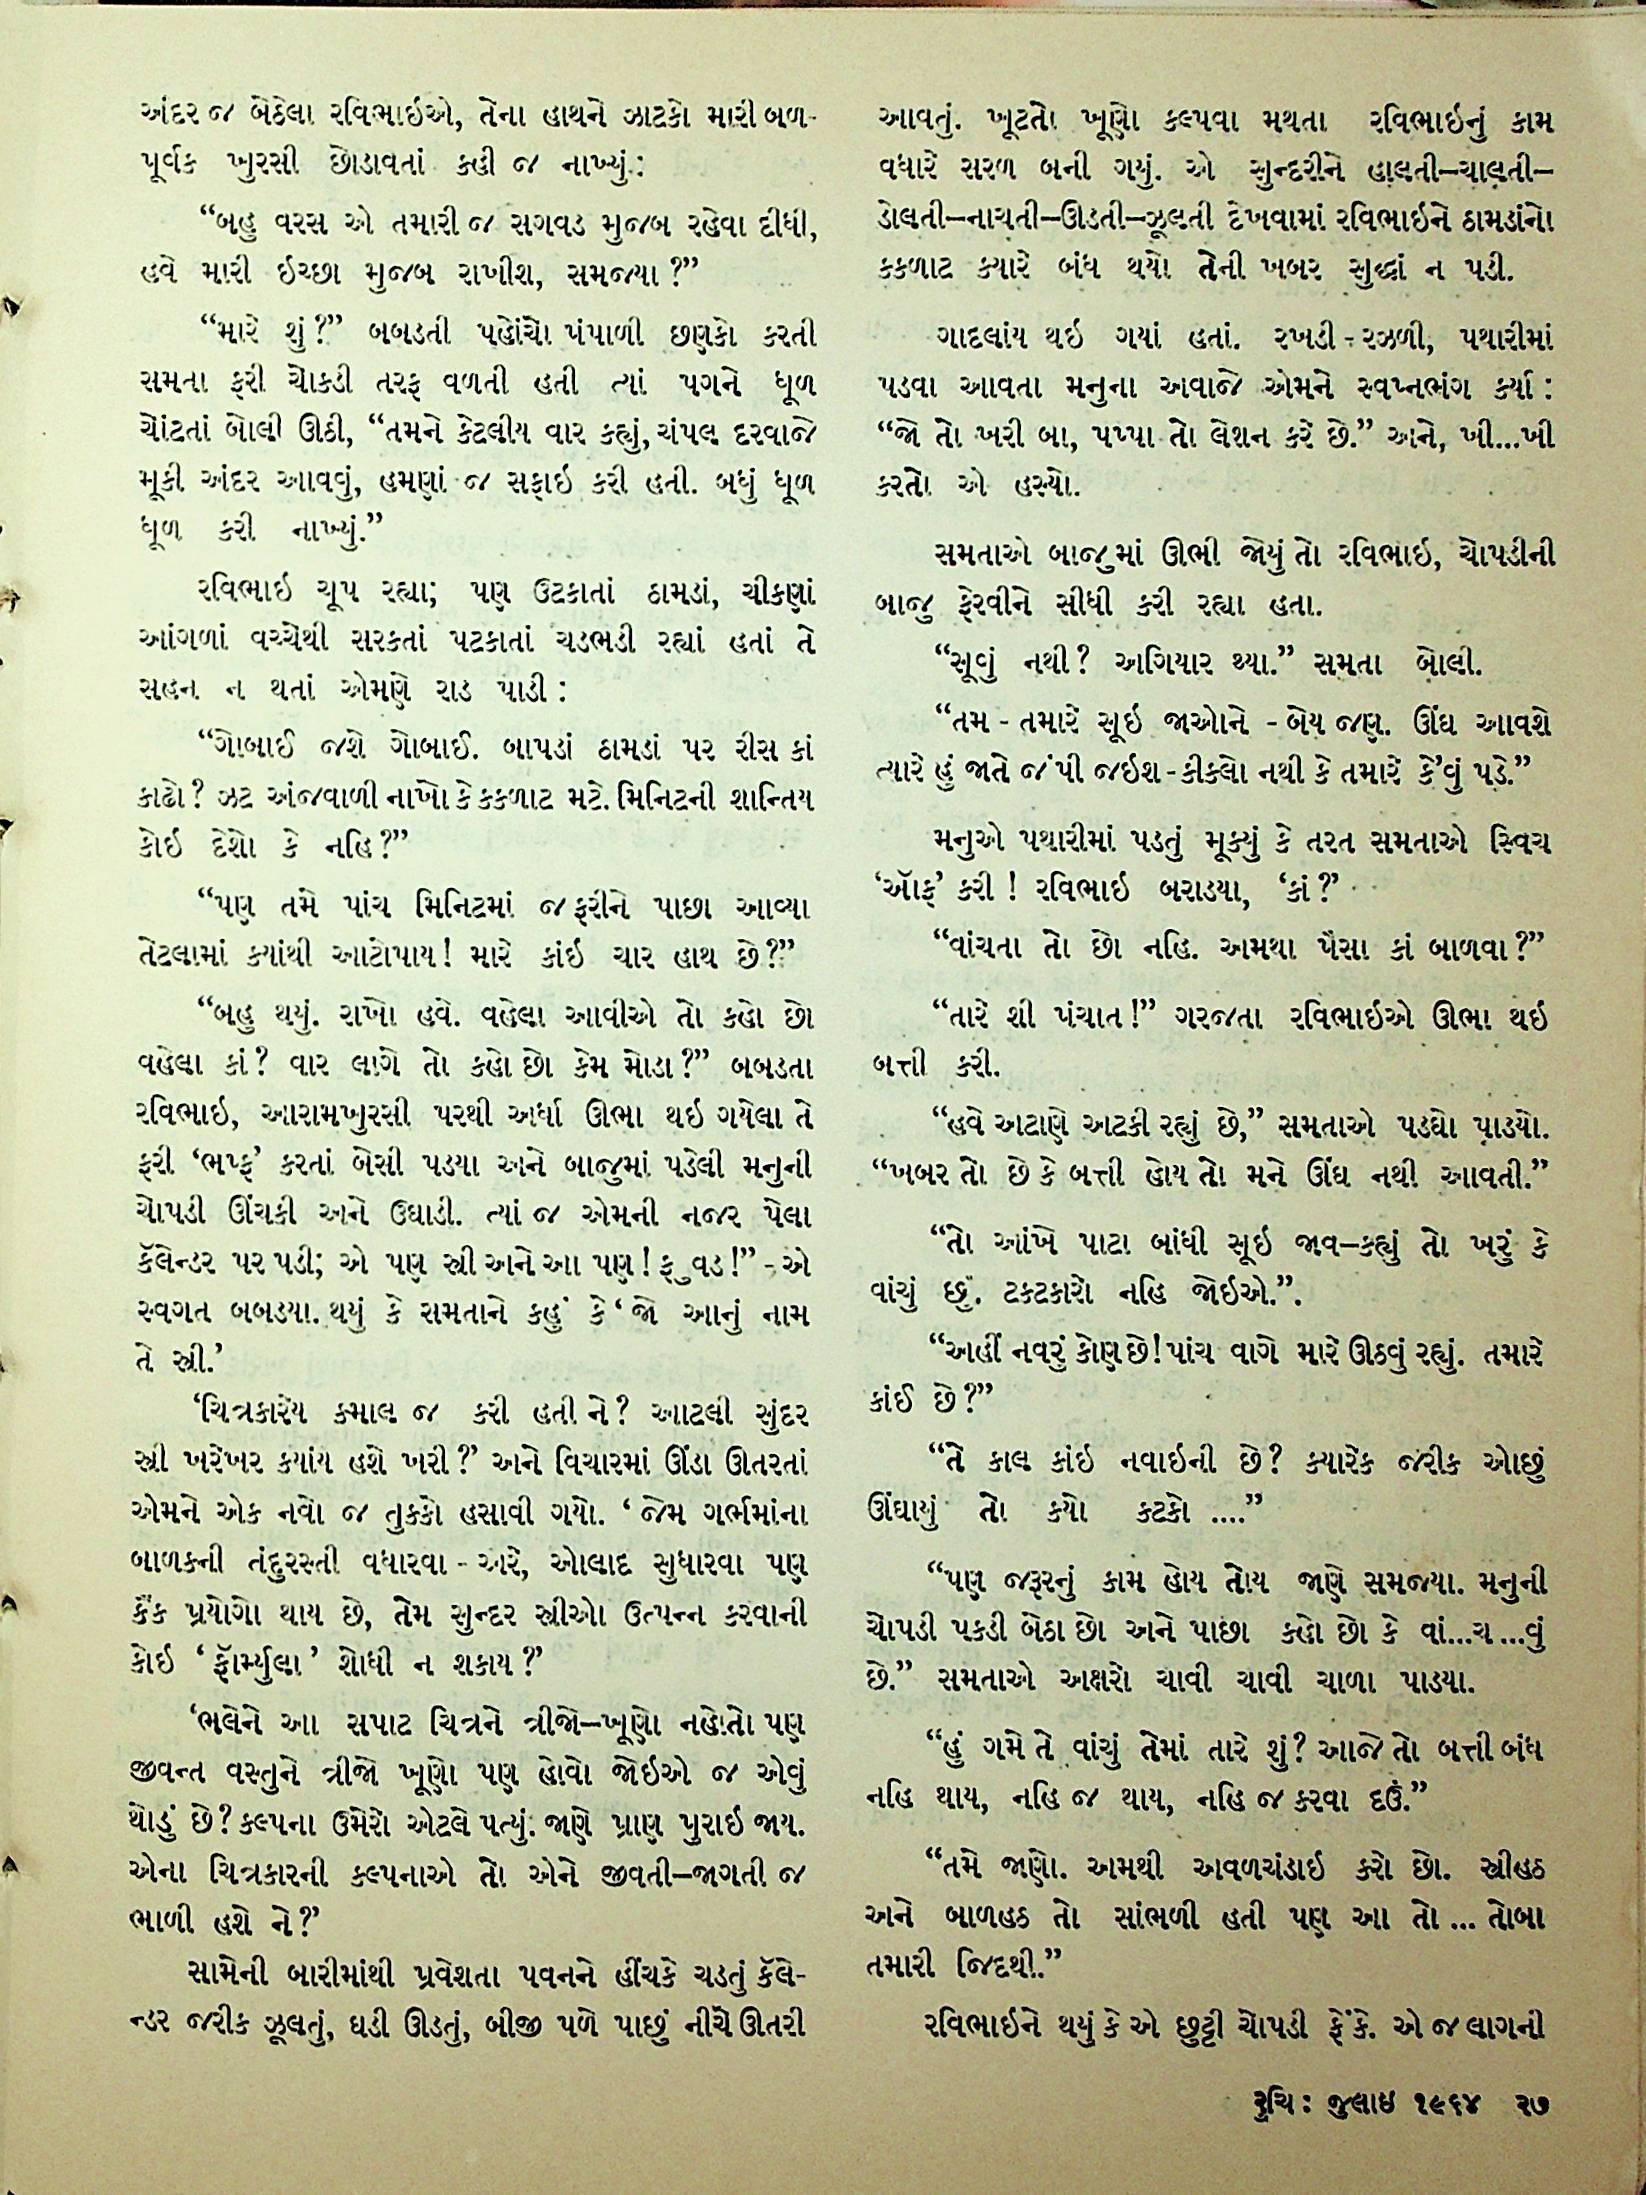 અંદર જ બેઠેલા રવિભાઇએ, તેના હાથને ઝાટકો મારી બળ-
પૂર્વક ખુરસી છોડાવતાં કહી જ નાખ્યું:
“બહુ વરસ એ તમારી જ સગવડ મુજબ રહેવા દીધી,
હવે મારી ઇચ્છા મુજબ રાખીશ, સમજ્યા ?”
“મારે શું ?” બબડતી પહોંચો પંપાળી છણકો કરતી
સમતા ફરી ચોકડી તરફ વળતી હતી ત્યાં પગને ધૂળ
ચોંટતાં બોલી ઊઠી, “તમને કેટલીય વાર કહ્યું, ચંપલ દરવાજે
મૂકી અંદર આવવું, હમણાં જ સફાઇ કરી હતી. બધું ધૂળ
ધૂળ કરી નાખ્યું.”
રવિભાઇ ચૂપ રહ્યા; પણ ઉટકાતાં ઠામડાં, ચીકણાં
આંગળાં વચ્ચેથી સરકતાં પટકાતાં ચડભડી રહ્યાં હતાં તે
સહન ન થતાં એમણે રાડ પાડી :
“ગોબાઈ જશે ગોબાઈ. બાપડાં ઠામડાં પર રીસ કાં
કાઢો ? ઝટ અંજવાળી નાખો કે કકળાટ મટે. મિનિટની શાન્તિય
કોઇ દેશો કે નહિ ?”
“પણ તમે પાંચ મિનિટમાં જ ફરીને પાછા આવ્યા
તેટલામાં ક્યાંથી આટોપાય! મારે કાંઇ ચાર હાથ છે ?”
“બહુ થયું. રાખો હવે. વહેલા આવીએ તો કહો છો
વહેલા કાં ? વાર લાગે તો કહો છો કેમ મોડા ?” બબડતા
રવિભાઇ, આરામખુરસી પરથી અર્ધા ઊભા થઇ ગયેલા તે
ફરી ‘ભપ્ફ’ કરતાં બેસી પડયા અને બાજુમાં પડેલી મનુની
ચોપડી ઊંચકી અને ઉઘાડી. ત્યાં જ એમની નજર પેલા
કૅલેન્ડર પર પડી; એ પણ સ્ત્રી અને આ પણ ! ફુવડ !” - એ
સ્વગત બબડયા. થયું કે સમતાને કહું કે ‘ જો આનું નામ
તે સ્ત્રી.’
‘ચિત્રકારેય કમાલ જ કરી હતી ને ? આટલી સુંદર
સ્ત્રી ખરેખર ક્યાંય હશે ખરી ?’ અને વિચારમાં ઊંડા ઊતરતાં
એમને એક નવો જ તુક્કો હસાવી ગયો. ‘ જેમ ગર્ભમાંના
બાળકની તંદુરસ્તી વધારવા - અરે, ઓલાદ સુધારવા પણ
કૈંક પ્રયોગો થાય છે, તેમ સુન્દર સ્ત્રીઓ ઉત્પન્ન કરવાની
કોઇ ‘ ફૉર્મ્યુલા ’ શોધી ન શકાય ?’
‘ભલેને આ સપાટ ચિત્રને ત્રીજો–ખૂણો નહોતો પણ
જીવન્ત વસ્તુને ત્રીજો ખૂણો પણ હોવો જોઇએ જ એવું
થોડું છે ? કલ્પના ઉમેરો એટલે પત્યું. જાણે પ્રાણ પુરાઇ જાય.
એના ચિત્રકારની કલ્પનાએ તો એને જીવતી–જાગતી જ
ભાળી હશે ને ?’
સામેની બારીમાંથી પ્રવેશતા પવનને હીંચકે ચડતું કૅલે-
ન્ડર જરીક ઝૂલતું, ઘડી ઊડતું, બીજી પળે પાછું નીચે ઊતરી
આવતું. ખૂટતો ખૂણો કલ્પવા મથતા રવિભાઇનું કામ
વધારે સરળ બની ગયું. એ સુન્દરીને હાલતી–ચાલતી–
ડોલતી–નાચતી–ઊડતી–ઝૂલતી દેખવામાં રવિભાઇને ઠામડાંનો
કકળાટ ક્યારે બંધ થયો તેની ખબર સુદ્ધાં ન પડી.
ગાદલાંય થઇ ગયાં હતાં. રખડી - રઝળી, પથારીમાં
પડવા આવતા મનુના અવાજે એમને સ્વપ્નભંગ કર્યા :
“જો તો ખરી બા, પપ્પા તો લેશન કરે છે.” અને, ખી...ખી
કરતો એ હસ્યો.
સમતાએ બાજુમાં ઊભી જોયું તો રવિભાઇ, ચોપડીની
બાજુ ફેરવીને સીધી કરી રહ્યા હતા.
“સૂવું નથી ? અગિયાર થ્યા.” સમતા બોલી.
“તમ - તમારે સૂઇ જાઓને - બેય જણ. ઊંઘ આવશે
ત્યારે હું જાતે જંપી જઇશ - કીકલો નથી કે તમારે કે’વું પડે.”
મનુએ પથારીમાં પડતું મૂક્યું કે તરત સમતાએ સ્વિચ
‘ઑફ’ કરી ! રવિભાઇ બરાડયા, ‘કાં ?’
“વાંચતા તો છો નહિ. અમથા પૈસા કાં બાળવા ?”
“તારે શી પંચાત !” ગરજતા રવિભાઇએ ઊભા થઇ
બત્તી કરી.
“હવે અટાણે અટકી રહ્યું છે,” સમતાએ પડઘો પાડયો.
“ખબર તો છે કે બત્તી હોય તો મને ઊંઘ નથી આવતી.”
“તો આંખે પાટા બાંધી સૂઇ જાવ–કહ્યું તો ખરું કે
વાંચું છું. ટકટકારો નહિ જોઇએ.”.
“અહીં નવરું કોણ છે ! પાંચ વાગે મારે ઊઠવું રહ્યું. તમારે
કાંઈ છે ?”
“તે કાલ કાંઇ નવાઇની છે ? ક્યારેક જરીક ઓછું
ઊંઘાયું તો કયો કટકો ....”
“પણ જરૂરનું કામ હોય તોય જાણે સમજયા. મનુની
ચોપડી પકડી બેઠા છો અને પાછા કહો છો કે વાં...ચ ...વું
છે.” સમતાએ અક્ષરો ચાવી ચાવી ચાળા પાડયા.
“હું ગમે તે વાંચું તેમાં તારે શું ? આજે તો બત્તી બંધ
નહિ થાય, નહિ જ થાય, નહિ જ કરવા દઉં.”
“તમે જાણો. આમથી આવળચંડાઇ કરો છો. સ્ત્રીહઠ
અને બાળહઠ તો સાંભળી હતી પણ આ તો ... તોબા
તમારી જિદથી.”
રવિભાઇને થયું કે એ છુટ્ટી ચોપડી ફેંકે. એ જ લાગની
રુચિ : જુલાઇ ૧૯૬૪ ૨૭